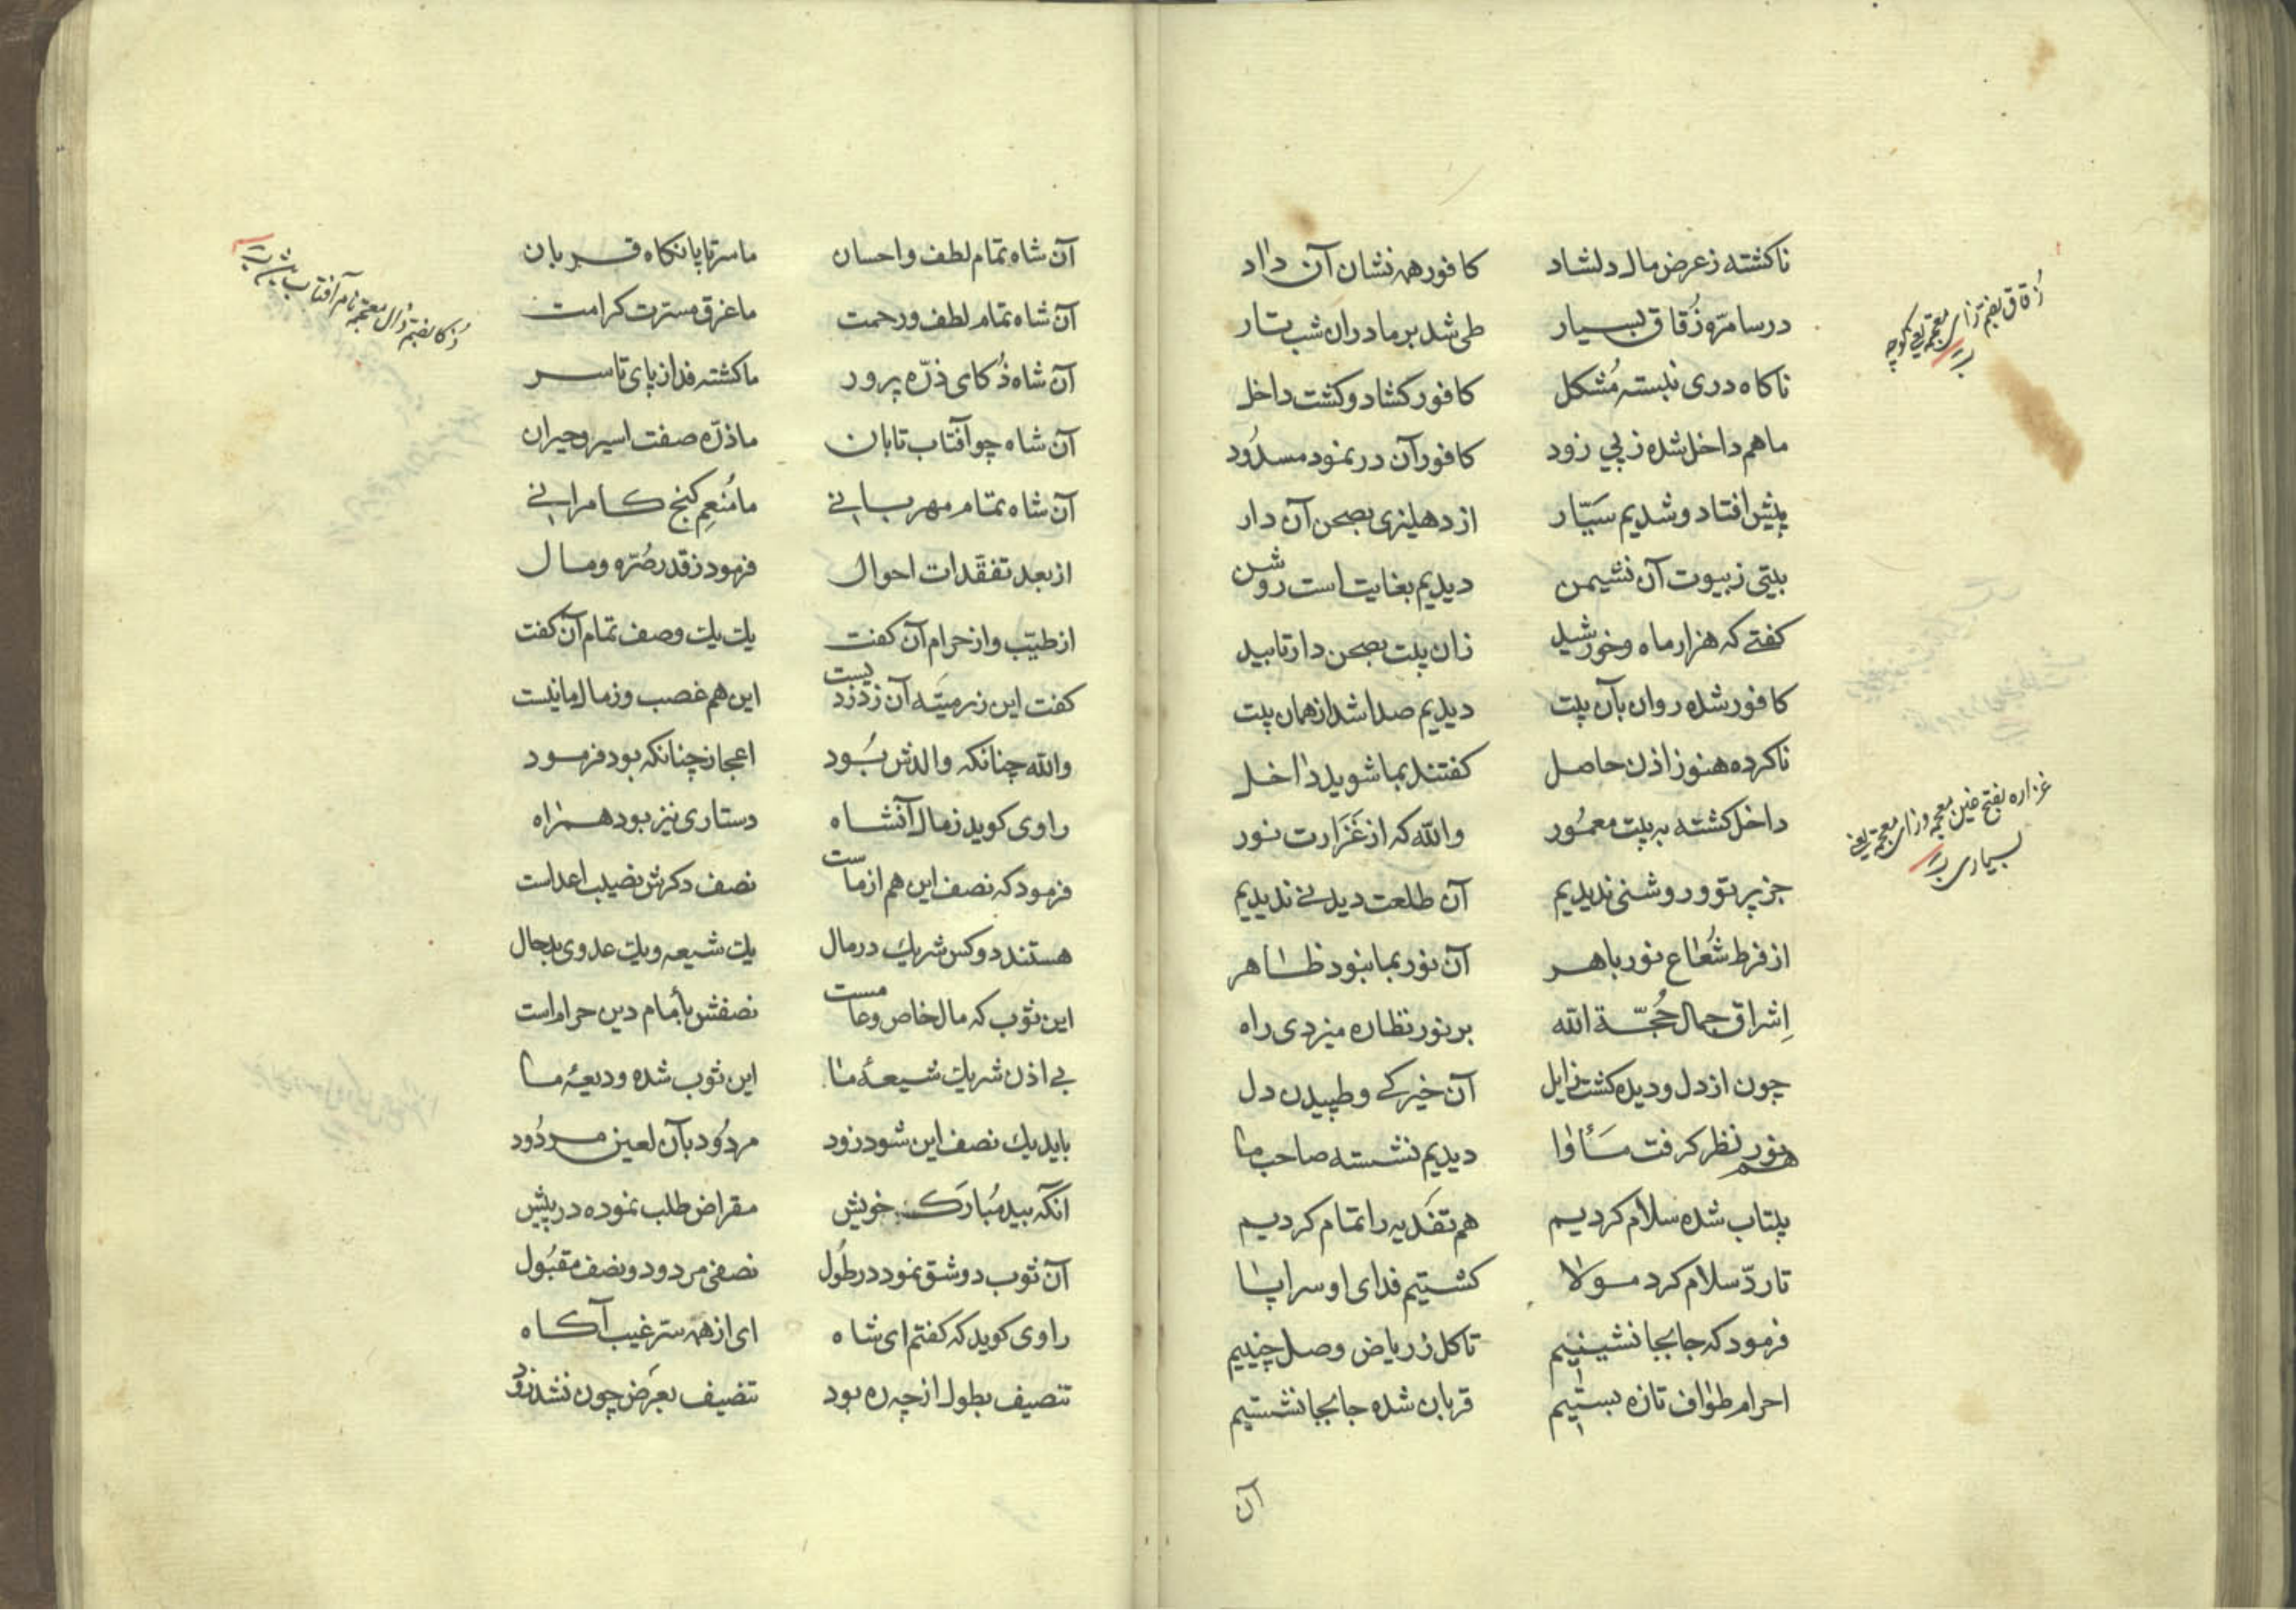 ناکشته زعرض مال دلشاد کافور همه نشان آن داد
در سامرّه زُقاق بسیار طی شد بر ما دران شب تار
ناکاه دری نبسته مُشکل کافور کشاد و کشت داخل
ما هم داخل شده ز پی زود کافور آن در نمود مسدُود
پیش افتاد و شدیم سَیّار از دهلیزی بصحن آن دار
بیتی ز بیوت آن نشیمن دیدیم بغایت است روشن
کفتے که هزار ماه و خورشید زان بیت بصحن دار تابید
کافور شده روان بآن بیت دیدیم صدا شد از همان بیت
ناکرده هنوز اذن حاصل کفتند بما شوید داخل
داخل کشته به بیت معمُور والله که از غَزَارت نور
جز پرتو و روشنی ندیدیم آن طلعت دیدنے ندیدیم
از فرط شُعاع نور باهر آن نور بما نبود ظاهر
اِشراق جمال حُجّة الله بر نور نظاره میزدی راه
چون از دل و دیده کشت زایل آن خیرکے و طپیدن دل
هم نور نظر کرفت مَأوا دیدیم نشسته صاحب ما
بیتاب شده سلام کردیم هم تفَدیه را تمام کردیم
تا ردّ سلام کرد مولا کشتیم فدای او سراپا
فرمود که جابجا نشینیم تا کل ز ریاض وصل چینیم
احرام طواف تازه بستیم قربان شده جابجا نشستیم
آن
زُقاق بضم زای معجمه یعنی کوچه
غزاره بفتح غین معجمه و زای معجمه یعنی
بسیاری
آن شاه تمام لطف و احسان ما سر تا پا نکاه قربان
آن شاه تمام لطف و رحمت ما غرق مسرّت کرامت
آن شاه ذُکای ذرّه پرور ما کشته فدا ز پای تا سر
آن شاه چو آفتاب تابان ما ذرّه صفت اسیر و حیران
آن شاه تمام مهربانے ما مُنعِم کنج کامرانے
از بعد تفقدات احوال فرمود ز قدر صُرّه و مال
از طیّب و از حرام آن کفت یك یك وصف تمام آن کفت
کفت این زر میّته آن ز دزدیست این هم غصب و ز مال ما نیست
والله چنانکه والدش بُود اعجاز چنانکه بود فرمود
راوی کوید ز مال آنشاه دستاری نیز بود همراه
فرمود که نصف این هم از ماست نصف دکرش نصیب اعداست
هستند دو کس شریك در مال یك شیعه و یك عدوی بدحال
این ثوب که مال خاص و عامست نصفش بأمام دین حرام است
بے اذن شریك شیعهٔ ما این ثوب شده ودیعهٔ ما
باید یك نصف این شود زود مردُود بآن لعین مردُود
آنکه بید مُبارَك خویش مقراض طلب نموده در پیش
آن ثوب دو شق نمود در طُول نصفی مردود و نصف مقبُول
راوی کوید که کفتم ای شاه ای از همه سرّ غیب آکاه
تنصیف بطول از چه ره بود تنصیف بعَرض چون نشد زود
ذُکا بضم ذال معجمه نام آفتاب